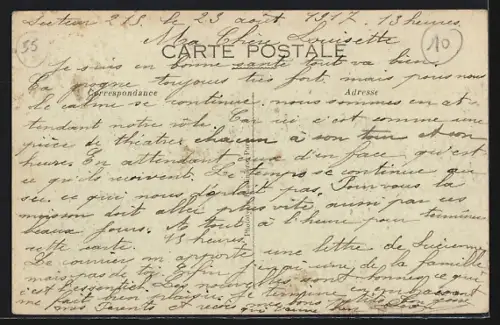 Secteur 213. le 23 août 1917. 13 heures.
35
10
Ma Chère Louisette
CARTE POSTALE
Je suis en bonne santé tout va bien.
Ça grogne toujours très fort, mais pour nous
Correspondance
Adresse
le calme se continue, nous sommes en at-
tendant notre rôle. Car ici c'est comme une
pièce de théâtre, chacun à son tour et son
heure. En attendant ceux d'en face qu'est
ce qu'ils reçoivent. Le temps se continue
sec, ce qui nous déplait pas. Pour vous la
moisson doit aller plus vite, aussi par ces
beaux jours. A tout à l'heure pour terminer
cette carte. 15 heures.
Le courrier m'apporte une lettre de
mais pas de toi. Enfin j'ai de la famille
c'est l'essentiel. Les nouvelles sont bonnes, ce qui
me fait bien plaisir. Je termine en embrassant
mes Parents et